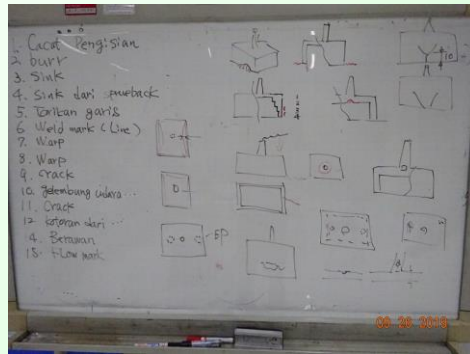 1. Cacat Pengisian
2. burr
3. Sink
4. Sink dari
5. Tarikan garis
6. Weld mark (Line)
7. Warp
8. Warp
9. Crack
10. gelembung udara ...
11. Crack
12. kotoran dari ...
4. Berawan
15. Flow mark
10
EP
09 20 2019